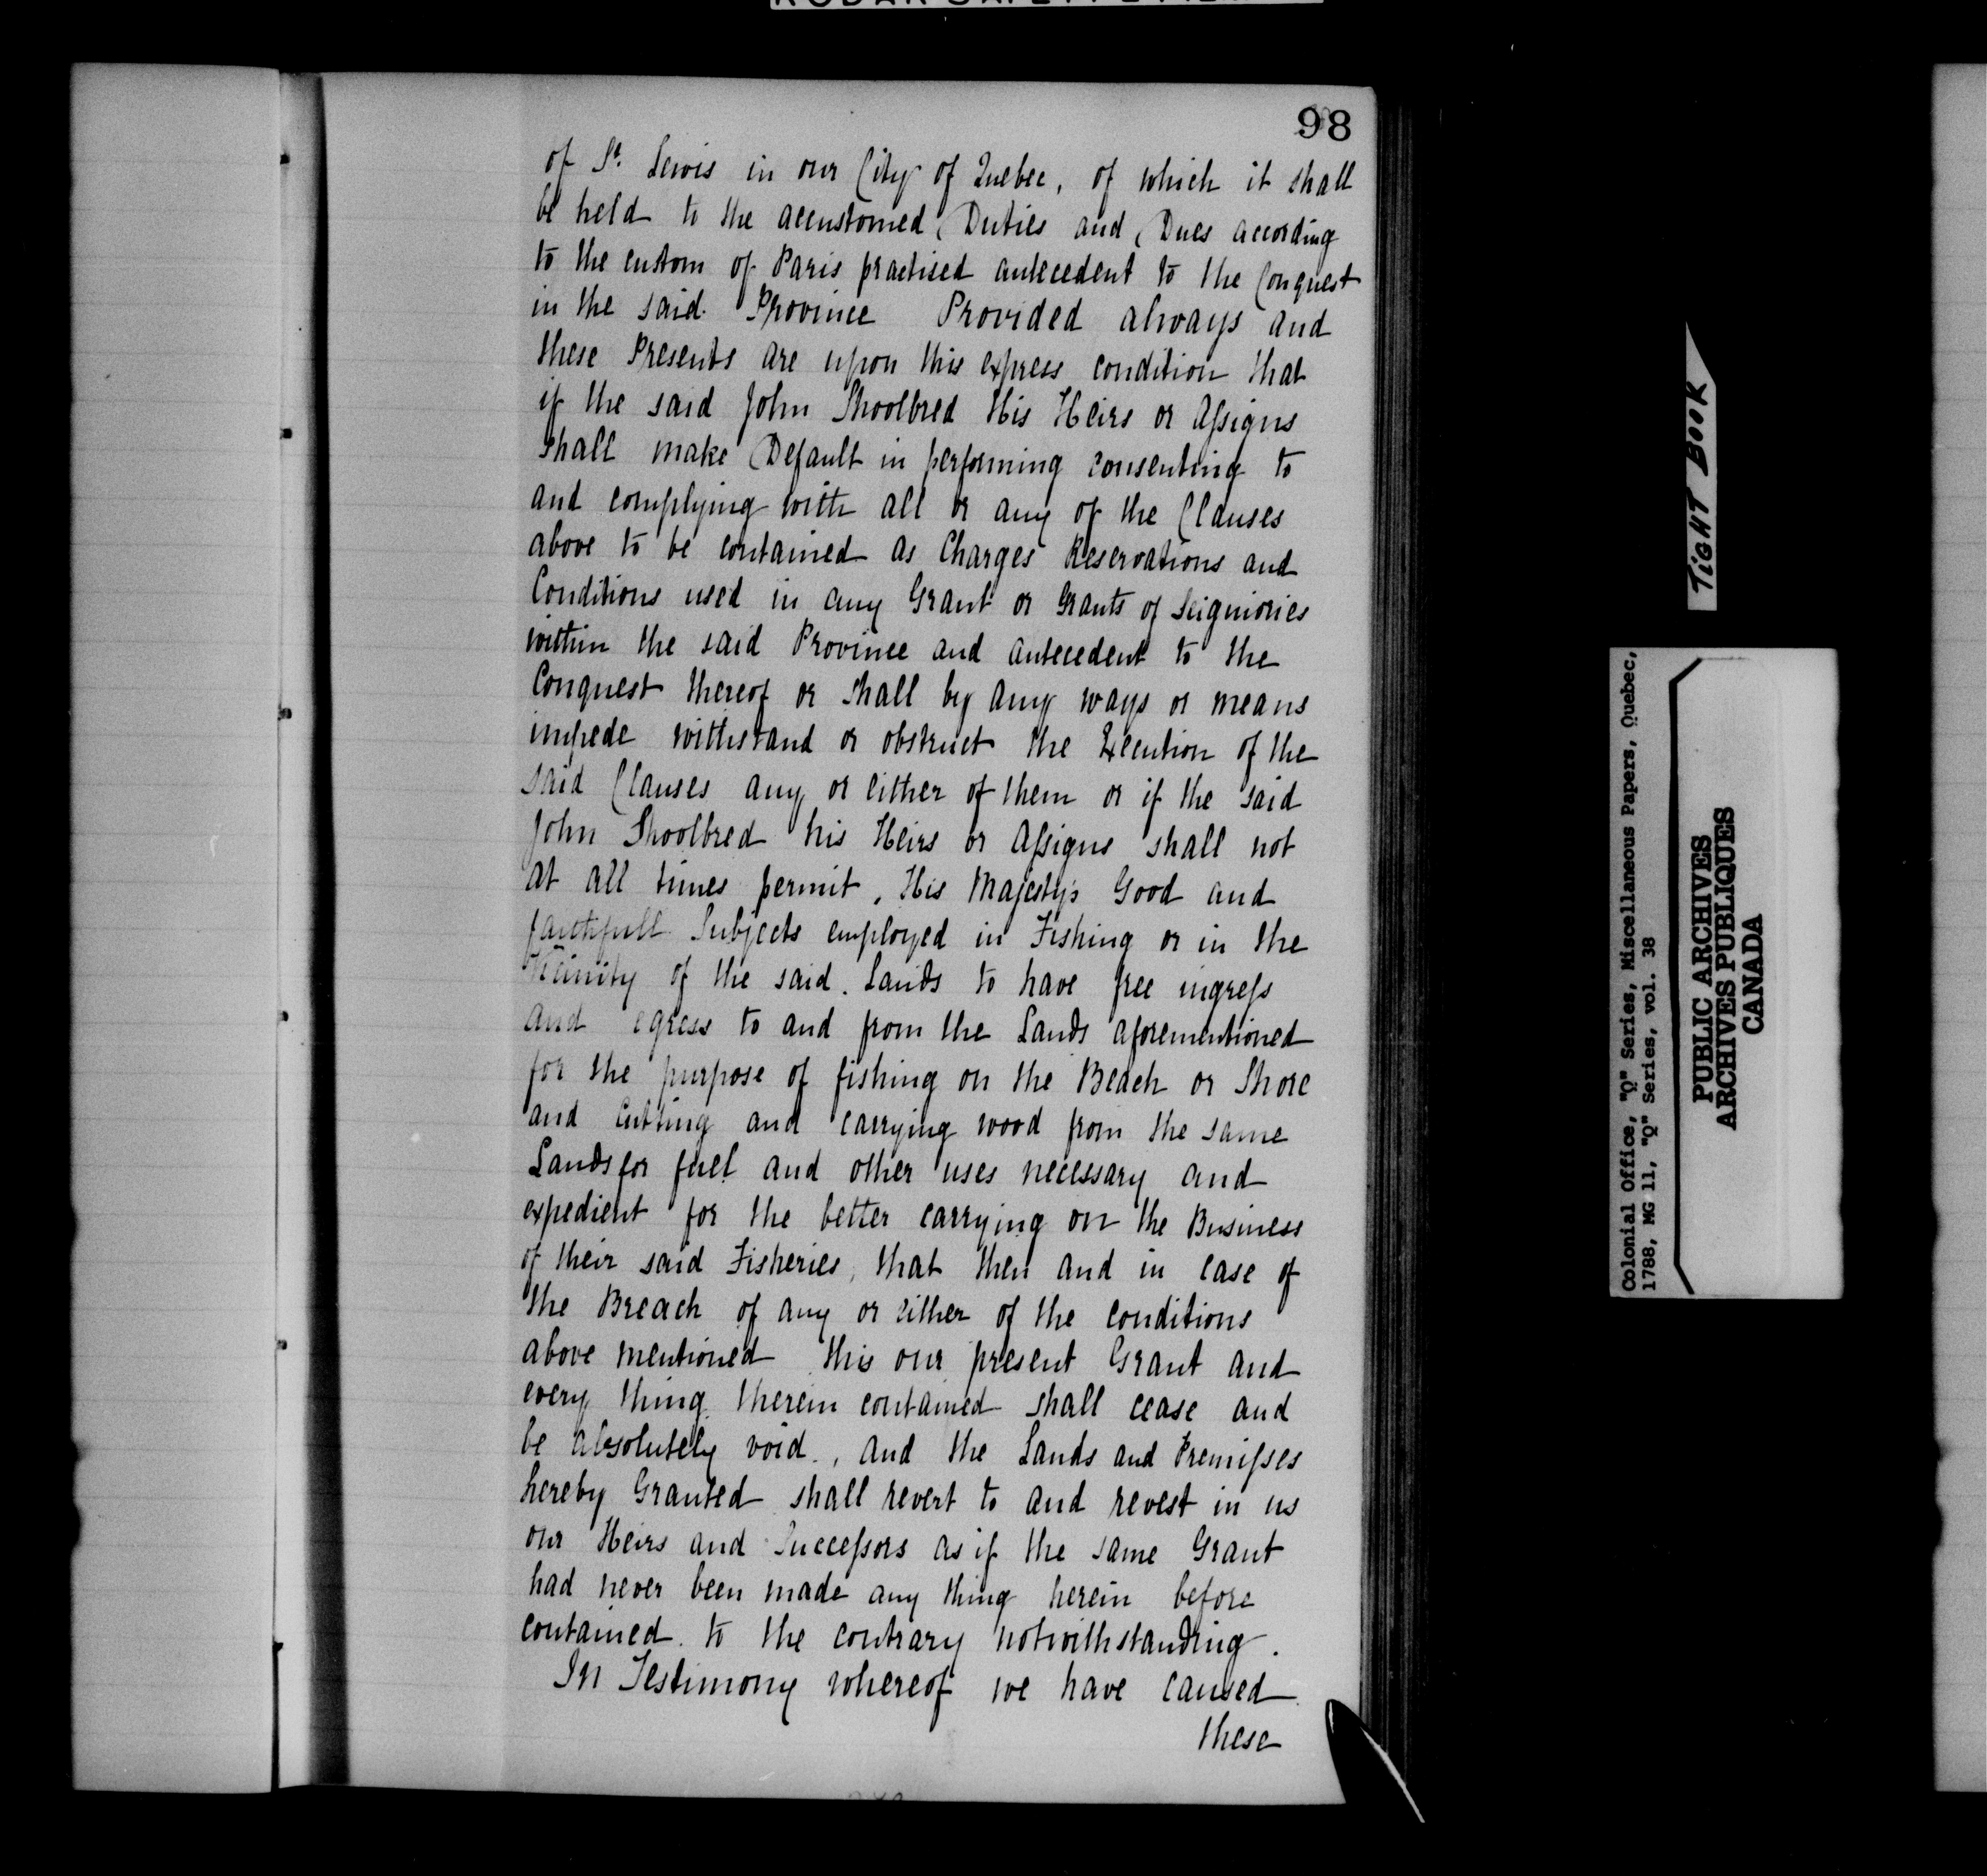 98
of St. Lewis in our City of Quebec, of which it shall
be held to the accustomed Duties and Dues according
to the custom of Paris practised antecedent to the Conquest
in the said Province Provided always and
these Presents are upon this express condition that
if the said John Shoolbred His Heirs or Assigns
shall make Default in performing consenting to
and complying with all or any of the Clauses
above to be contained as Charges Reservations and
Conditions used in any Grant or Grants of Seigniories
within the said Province and antecedent to the
Conquest thereof or shall by any ways or means
impede withstand or obstruct the Execution of the
said Clauses any or either of them or if the said
John Shoolbred his Heirs or Assigns shall not
at all times permit, His Majesty's Good and
faithfull Subjects employed in Fishing or in the
Vicinity of the said Lands to have free ingress
and egress to and from the Lands aforementioned
for the purpose of fishing on the Beach or Shore
and Cutting and carrying wood from the same
Lands for fuel and other uses necessary and
expedient for the better carrying on the Business
of their said Fisheries, that then and in case of
the Breach of any or either of the conditions
above mentioned this our present Grant and
every thing therein contained shall cease and
be absolutely void, and the Lands and Premisses
hereby Granted shall revert to and revest in us
our Heirs and Successors as if the same Grant
had never been made any thing herein before
contained to the contrary notwithstanding.
In Testimony whereof we have caused
these
TIGHT BOOK
Colonial Office, "Q" Series, Miscellaneous Papers, Quebec,
1788, MG 11, "Q" Series, vol. 38
PUBLIC ARCHIVES
ARCHIVES PUBLIQUES
CANADA